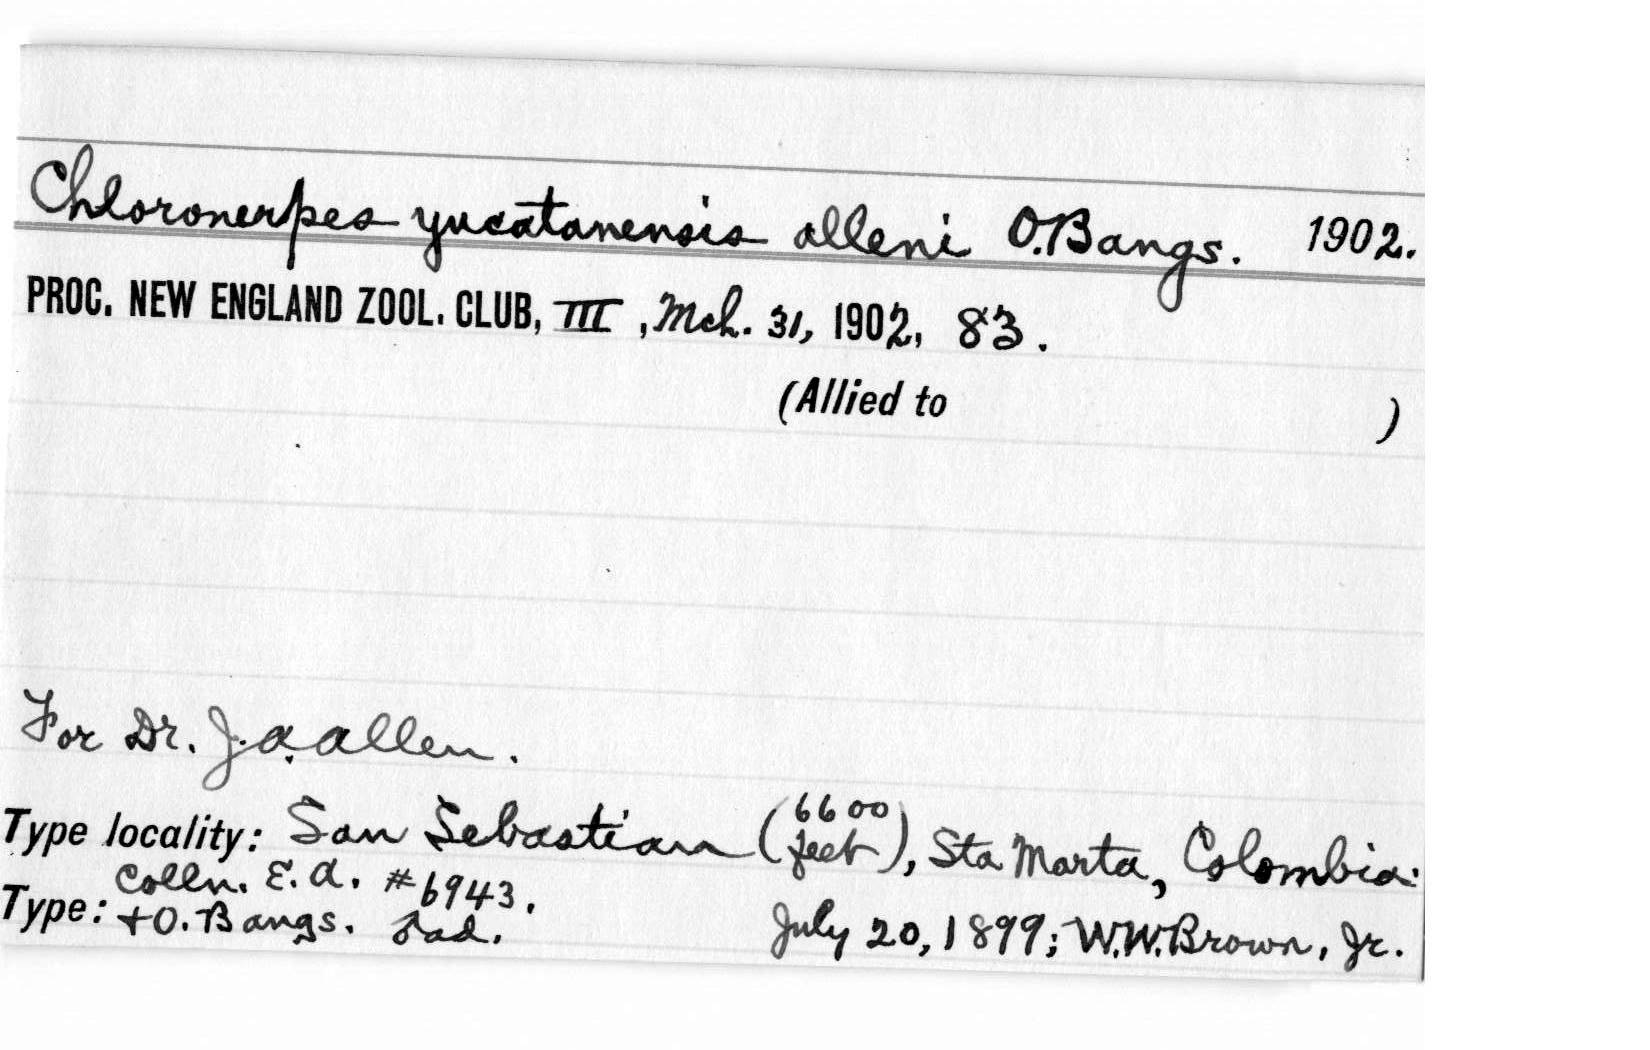 Chloronerpes yucatanensis alleni O. Bangs. 1902.
PROC. NEW ENGLAND ZOOL. CLUB, III, Mch. 31, 1902, 83.
(Allied to )
For Dr. J. A. Allen.
Type locality: San Sebastian (6600 feet), Sta Marta, Colombia:
Type: Colln. E. A. + O. Bangs. #6943. ♂ ad. July 20, 1899; W. W. Brown, Jr.